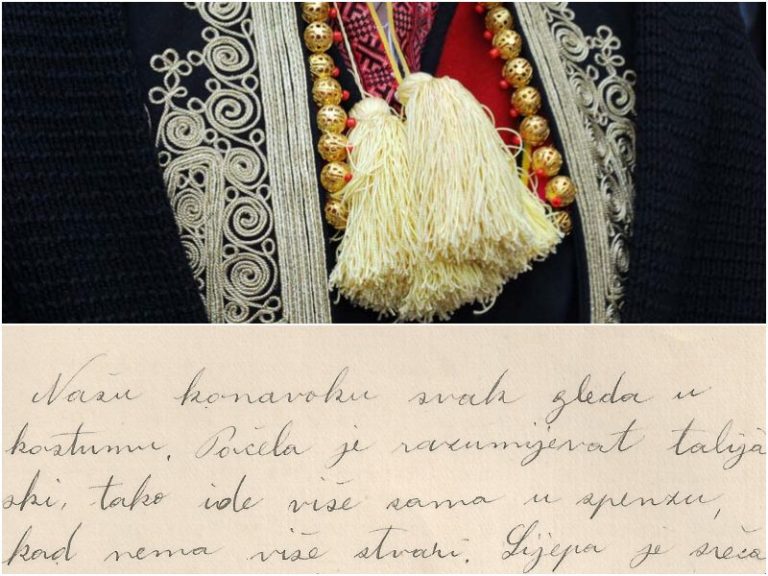 Našu konavoku svak gleda u
kostumu. Počela je razumijevat talija
ski, tako ide više sama u spenzu,
kad nema više stvari. Lijepa je sreća